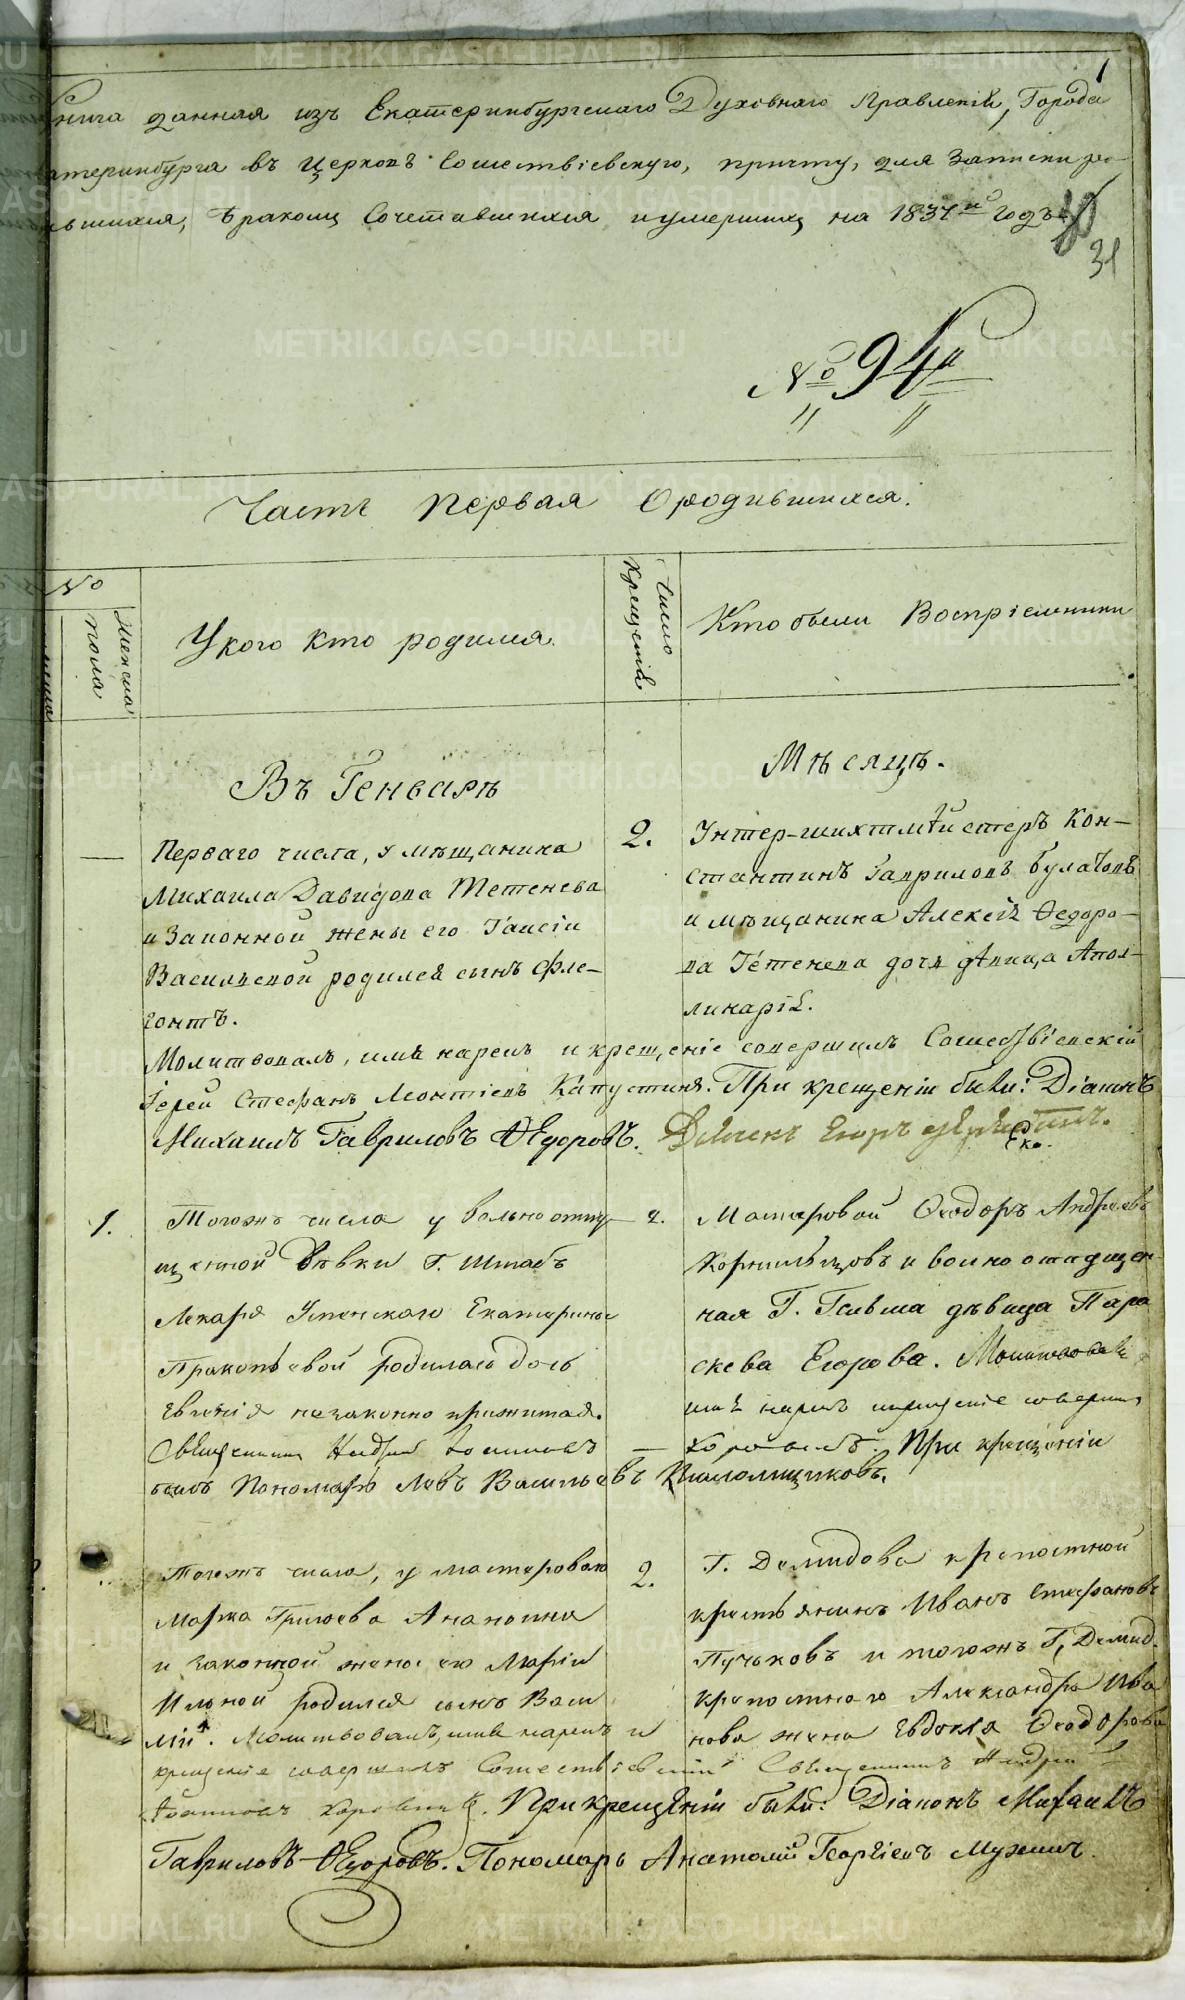 1
Книга данная изъ Екатеринбургскаго Духовнаго Правленія, Города
катеринбурга въ Церковь Сошествіевскую, причту, для Записки ро-
вшихся, бракомъ Сочетавшихся и умершихъ на 1837й годъ
31
№ 94й
Часть Первая О родившихся.
№
Женска
пола
У кого кто родился.
Число
крещенія
Кто были Воспріемники
Въ Генварѣ
Мѣсяцѣ.
—
Перваго числа, у мѣщанина
Михаила Давидова Тетенева
и Законной жены его Таисіи
Васильевой родился сынъ Фле-
гонтъ.
2.
Унтер-шихтмейстеръ Кон-
стантинъ Гавриловъ Булатовъ
и мѣщанина Алексѣя Ѳедоро-
ва Тетенева дочь дѣвица Апол-
линарія.
Молитвовалъ, имя нарекъ и крещеніе совершилъ Сошествіевскій
Іерей Стефанъ Леонтіевъ Капустинъ. При крещеніи были: Діаконъ
Михаилъ Гавриловъ Ѳедоровъ. Дьячекъ Егоръ
1.
Тогожъ числа у вольноотпу-
щенной дѣвки Г. Штабъ
Лекаря Успенскаго Екатерины
Прокопьевой родилась дочь
Евгенія незаконно прижитая.
Священникъ Андрей Іоанновъ
2.
Мастеровой Ѳеодоръ Андреевъ
Корнильцовъ и вольноотпущен-
ная Г. дѣвица Пара
скева Егорова. Молитвовалъ
имя нарекъ и крещеніе совершил
— При крещеніи
былъ Пономарь Левъ Васильевъ
Тогожъ числа, у мастероваго
Марка Григоева Ананьина
и законной жены его Маріи
Ильиной родился сынъ Васи
лій. Молитвовалъ, имя нарекъ и
2.
Г. Демидова крепостной
крестьянинъ Иванъ Стефановъ
Пучьковъ и тогожъ Г. Демид.
крепостнаго Александра Ива
нова жена Евдокія Ѳеодорова
крещеніе совершилъ Сошествіевскій Священникъ Андрей
Іоанновъ При крещеніи были: Діаконъ Михаилъ
Гавриловъ Ѳедоровъ. Пономарь Анатолій Георгіевъ
METRIKI.GASO-URAL.RU